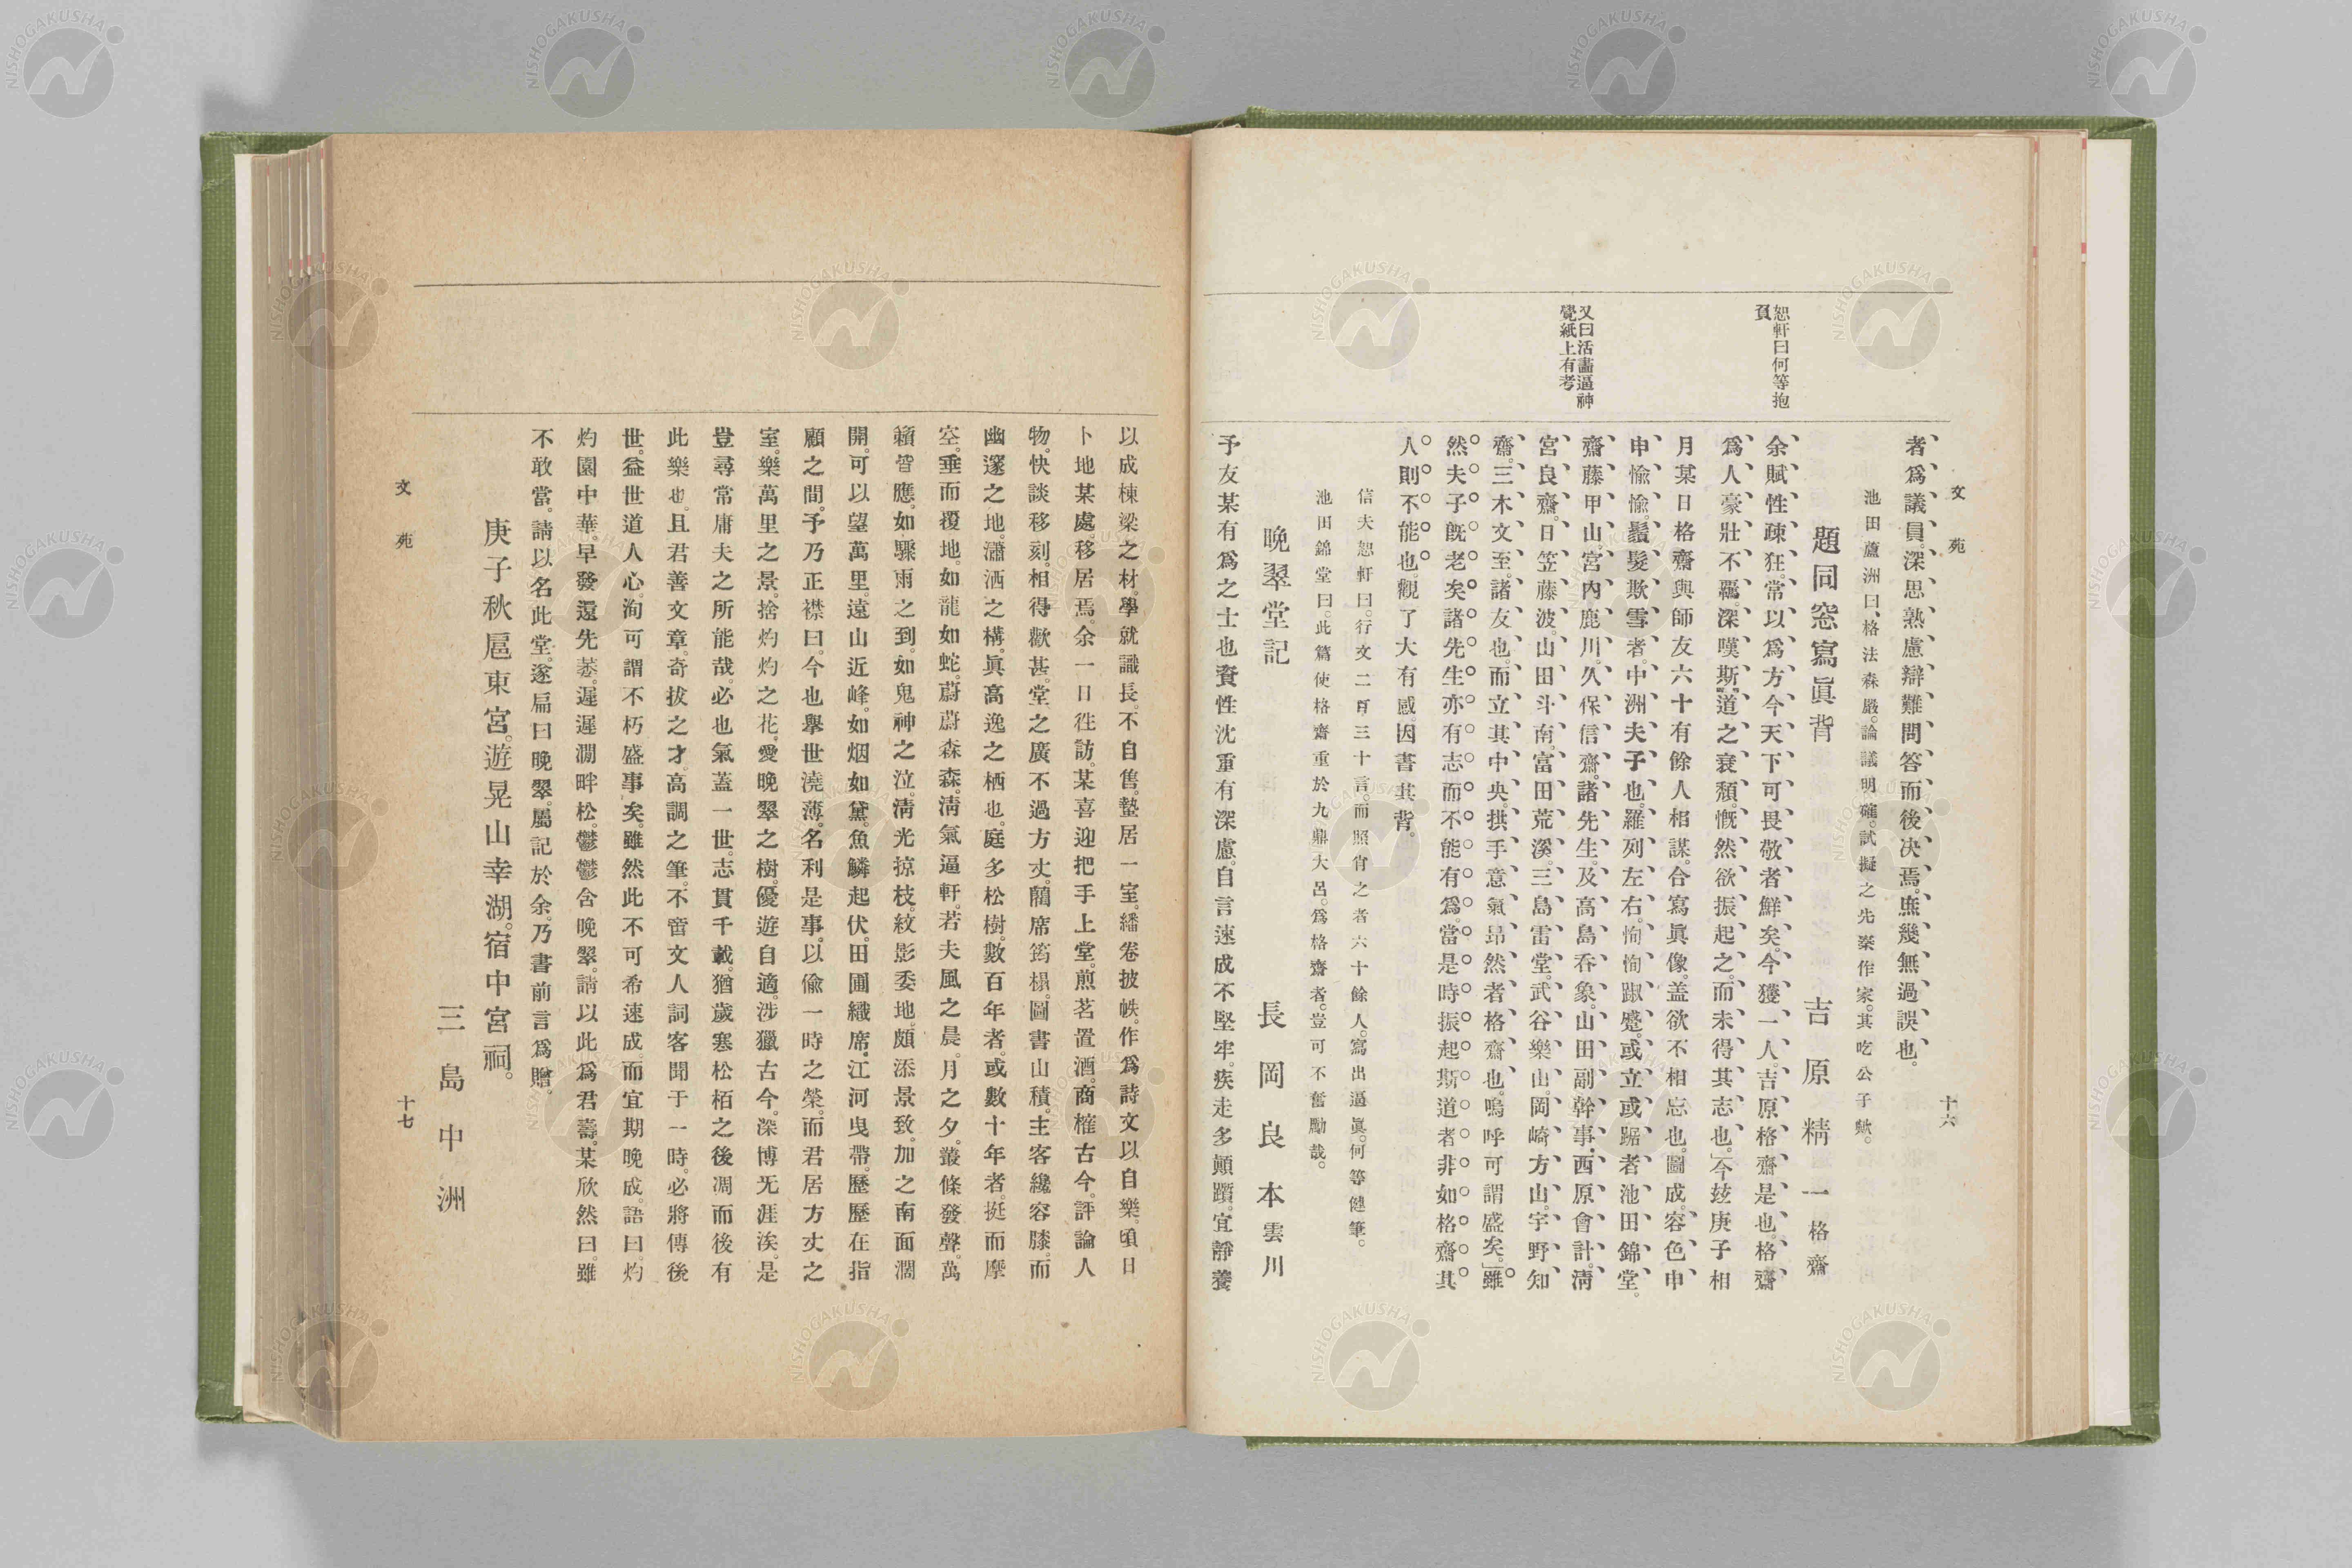 文苑
十六
者、爲議員。深思熟慮、辯難問答、而後決焉。庶幾無過誤也。
池田蘆洲曰、格法森嚴。論議明確。試擬之先輩作家。其吃公子歟。
題同窓寫眞背
吉原精一格齋
恕軒曰何等抱
負
余賦性疎狂。常以爲方今天下可畏敬者鮮矣。今獲一人。吉原格齋是也。格齋
爲人豪壯不羈。深嘆斯道之衰頽。慨然欲振起之。而未得其志也。」今玆庚子相
月某日格齋與師友六十有餘人相謀。合寫眞像。盖欲不相忘也。圖成。容色申
申愉愉。鬚髮欺雪者。中洲夫子也。羅列左右。恂恂踧蹙。或立或踞者池田錦堂。
又曰活畵逼神
覺紙上有考
齋藤甲山。宮內鹿川。久保信齋。諸先生。及高島呑象。山田副幹事。西原會計。淸
宮良齋。日笠藤波。山田斗南。富田荒溪。三島雷堂。武谷樂山。岡崎方山。宇野知
齋。三木文至。諸友也。而立其中央。拱手意氣昻然者格齋也。嗚呼可謂盛矣。」雖
然夫子旣老矣諸先生亦有志而不能有爲。當是時振起斯道者非如格齋其
人則不能也。觀了大有感。因書其背。
信夫恕軒曰。行文二百三十言。而照肖之者六十餘人。寫出逼眞。何等健筆。
池田錦堂曰。此篇使格齋重於九鼎大呂。爲格齋者。豈可不奮勵哉。
晩翠堂記
長岡良本雲川
予友某有爲之士也資性沈重有深慮。自言速成不堅牢。疾走多顚躓。宜靜養
以成棟梁之材。學就識長。不自售。蟄居一室。繙卷披帙。作爲詩文以自樂。頃日
卜地某處。移居焉。余一日徃訪。某喜迎把手上堂。煎茗置酒。商榷古今。評論人
物。快談移刻。相得歡甚。堂之廣不過方丈。藺席筠榻。圖書山積。主客纔容膝。而
幽邃之地。瀟洒之構。眞高逸之栖也。庭多松樹。數百年者。或數十年者。挺而摩
空。垂而覆地。如龍如蛇。蔚蔚森森。淸氣逼軒。若夫風之晨。月之夕。叢條發聲。萬
籟皆應。如驟雨之到。如鬼神之泣。淸光掠枝。紋影委地。頗添景致。加之南面濶
開。可以望萬里。遠山近峰。如烟如黛。魚鱗起伏。田圃織席。江河曳帶。歷歷在指
顧之間。予乃正襟曰。今也擧世澆薄。名利是事。以偸一時之榮。而君居方丈之
室。樂萬里之景。捨灼灼之花。愛晩翠之樹。優遊自適。涉獵古今。深博旡涯涘。是
豈尋常庸夫之所能哉。必也氣蓋一世。志貫千載。猶歲寒松栢之後凋而後有
此樂也。且君善文章。奇拔之才。高調之筆。不啻文人詞客聞于一時。必將傳後
世。益世道人心。洵可謂不朽盛事矣。雖然此不可希速成。而宜期晩成。語曰。灼
灼園中華。早發還先萎。遲遲澗畔松。鬱鬱含晩翠。請以此爲君壽。某欣然曰。雖
不敢當。請以名此堂。遂扁曰晩翠。屬記於余。乃書前言爲贈。
庚子秋扈東宮。遊晃山幸湖。宿中宮祠。
三島中洲
文苑
十七